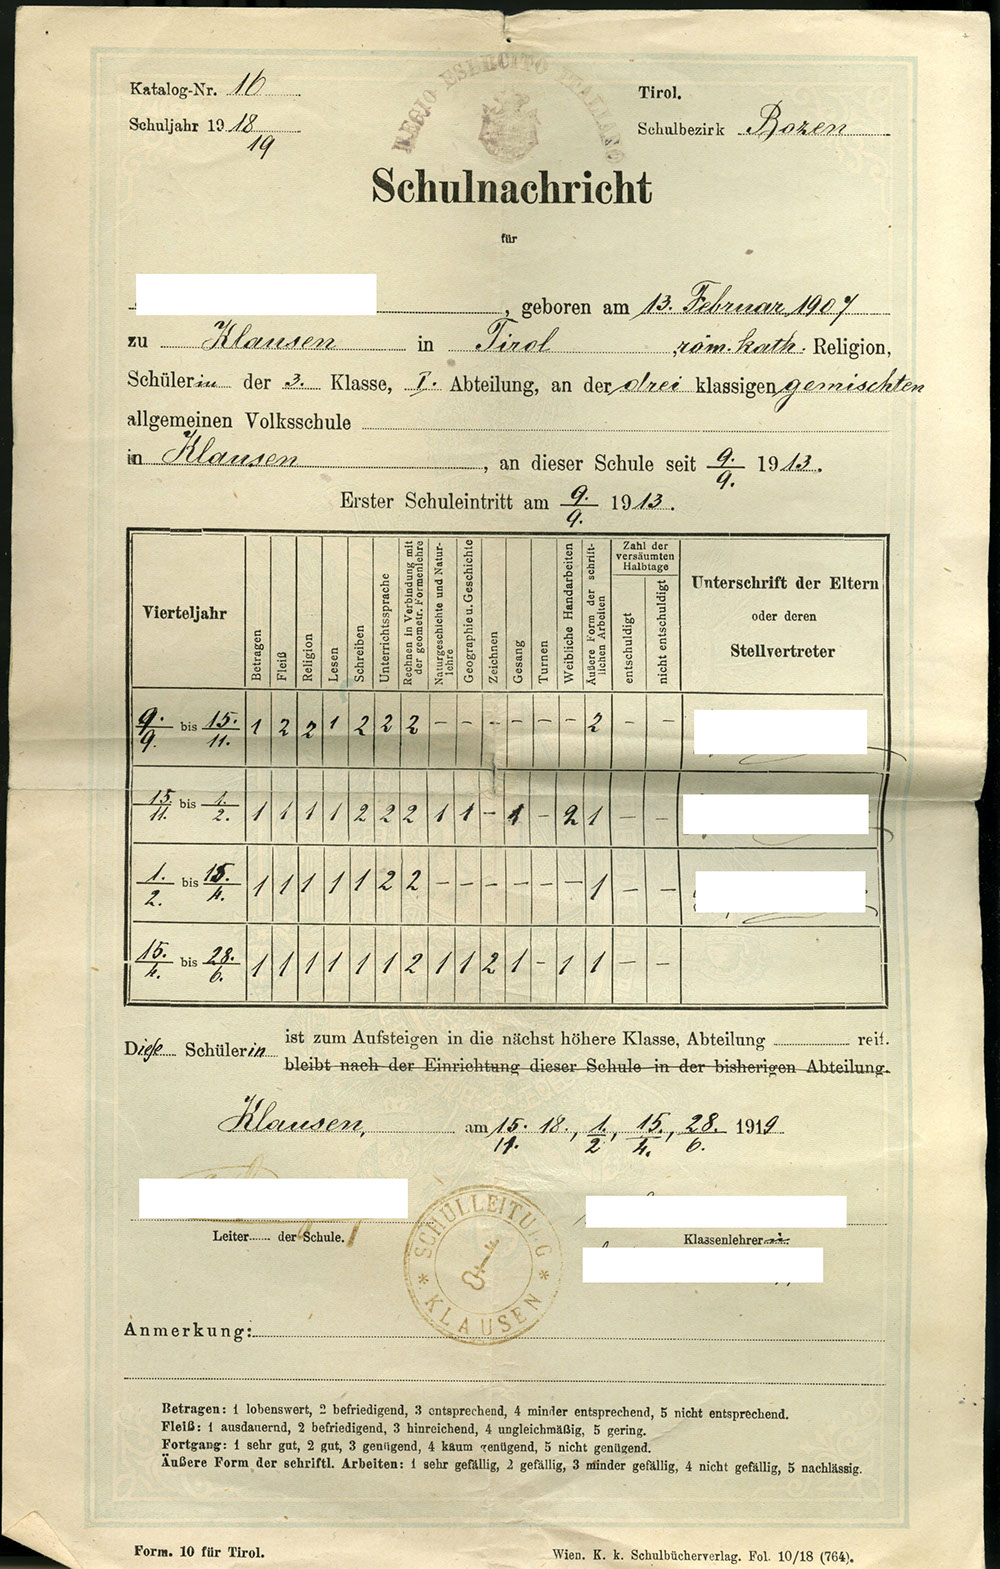 REGIO ESERCITO ITALIANO
Katalog-Nr. 16
Tirol.
Schuljahr 1918
19
Schulbezirk Bozen
Schulnachricht
für
, geboren am 13. Februar 1907
zu Klausen in Tirol röm. kath. Religion,
Schülerin der 3. Klasse, I. Abteilung, an der drei klassigen gemischten
allgemeinen Volksschule
in Klausen, an dieser Schule seit 9./9. 1913.
Erster Schuleintritt am 9./9. 1913.
Vierteljahr
Betragen
Fleiß
Religion
Lesen
Schreiben
Unterrichtssprache
Rechnen in Verbindung mit der geometr. Formenlehre
Naturgeschichte und Naturlehre
Geographie u. Geschichte
Zeichnen
Gesang
Turnen
Weibliche Handarbeiten
Äußere Form der schriftlichen Arbeiten
Zahl der versäumten Halbtage
entschuldigt
nicht entschuldigt
Unterschrift der Eltern
oder deren
Stellvertreter
9./9. bis 15./11. 1 2 2 1 2 2 2 - - - - - - 2 - -
15./11. bis 1./2. 1 1 1 1 2 2 2 1 1 - 1 - 2 1 - -
1./2. bis 15./4. 1 1 1 1 1 2 2 - - - - - - 1 - -
15./4. bis 28./6. 1 1 1 1 1 1 2 1 1 2 1 - 1 1 - -
Diese Schülerin ist zum Aufsteigen in die nächst höhere Klasse, Abteilung reif.
bleibt nach der Einrichtung dieser Schule in der bisherigen Abteilung.
Klausen, am 15./11. 18., 1./2, 15./4., 28./6. 1919
Leiter der Schule.
Klassenlehrer
SCHULLEITUNG
* KLAUSEN *
Anmerkung:
Betragen: 1 lobenswert, 2 befriedigend, 3 entsprechend, 4 minder entsprechend, 5 nicht entsprechend.
Fleiß: 1 ausdauernd, 2 befriedigend, 3 hinreichend, 4 ungleichmäßig, 5 gering.
Fortgang: 1 sehr gut, 2 gut, 3 genügend, 4 kaum genügend, 5 nicht genügend.
Äußere Form der schriftl. Arbeiten: 1 sehr gefällig, 2 gefällig, 3 minder gefällig, 4 nicht gefällig, 5 nachlässig.
Form. 10 für Tirol.
Wien. K. k. Schulbücherverlag. Fol. 10/18 (764).